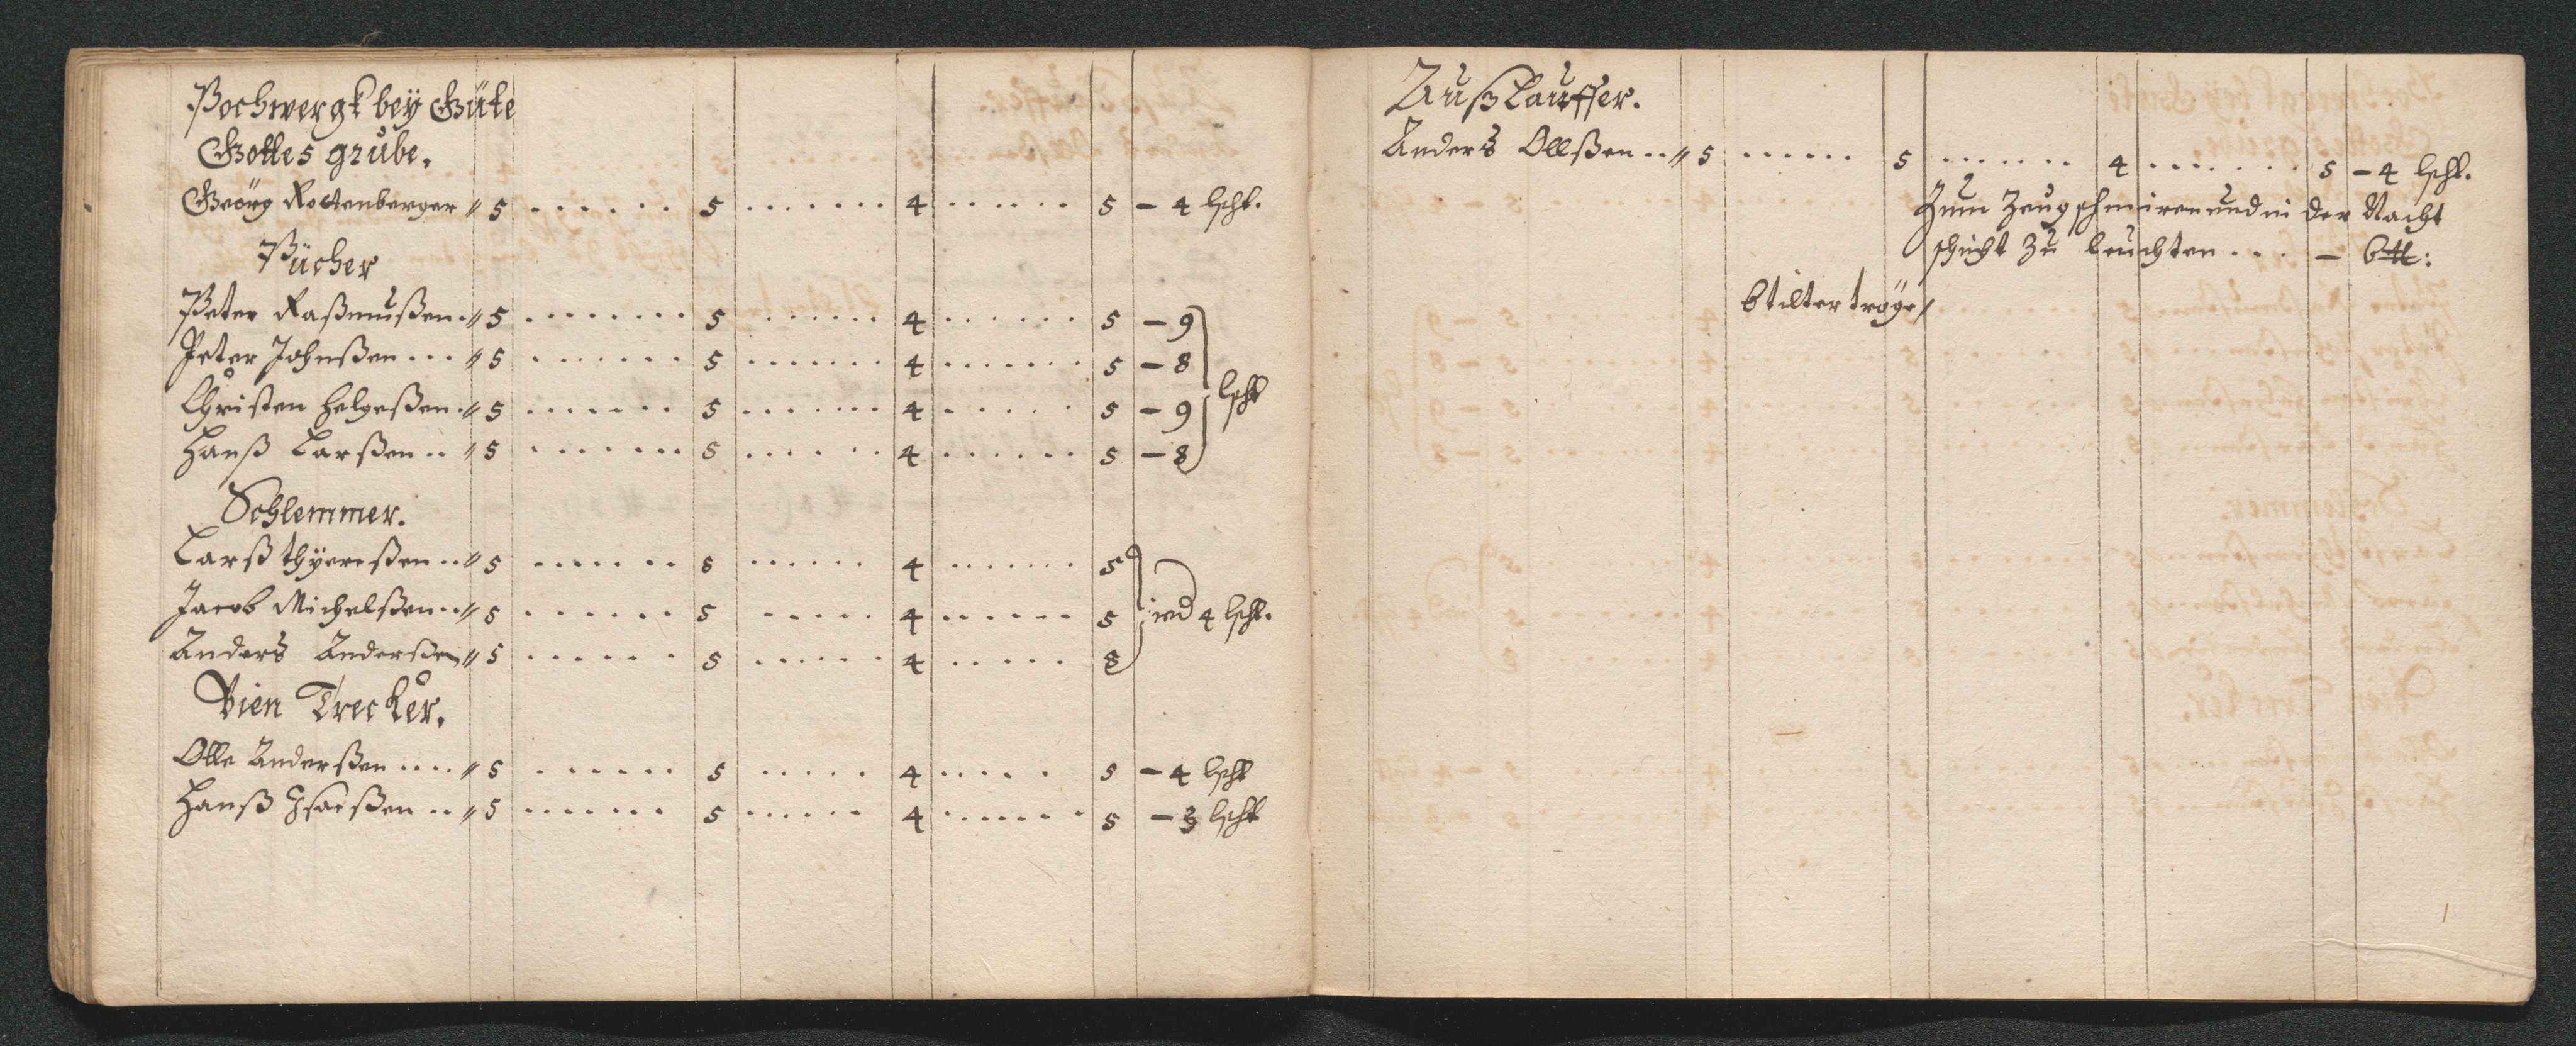 Pochwergk beÿ Güte
Gottes grube.
Geörg Rottenberger // 5 ...... 5 ....... 4 ...... 5 - 4 lßht.
Pücher
Peter Raßmußen . // 5 ........ 5 ...... 4 ...... 5 - 9
Peter Johnßen ... // 5 ....... 5 ....... 4 ....... 5 - 8
lßht
Christen Helgeßen . // 5 ....... 5 ....... 4 ...... 5 - 9
Hanß Larßen .. // 5 ....... 5 ...... 4 ...... 5 - 8
Schlemmer.
Larß thÿereßen .. // 5 ....... 5 ...... 4 ....... 5
Jacob Michelßen .. // 5 ...... 5 ..... 4 ...... 5 ied 4 lßht.
Anders Anderßen // 5 ...... 5 ...... 4 ..... 5
Vien Trecker.
Olle Anderßen .... // 5 ....... 5 ..... 4 ..... 5 - 4 lßht
Hanß Isacßen .. // 5 ....... 5 ...... 4 ....... 5 - 3 lßht
Außlauffer.
Anders Ollßen .. // 5 ...... 5 ....... 4 ....... 5 - 4 lßht.
Zum Zeug schmiren und in der Nacht
schicht zu leuchten ... - 6 tt:
6 tilter tröge /